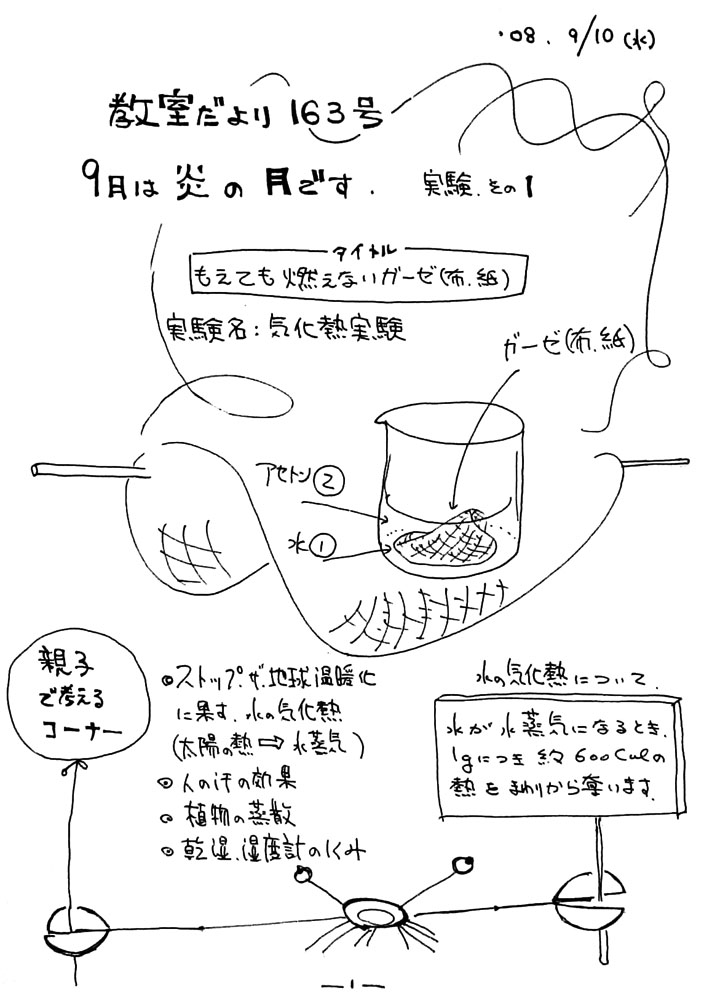 '08. 9/10 (水)
教室だより 163号
9月は 炎 の 月です. 実験.その1
タイトル
もえても 燃えないガーゼ(布.紙)
実験名:気化熱実験
ガーゼ(布.紙)
アセトン②
水①
親子
で考える
コーナー
◎ストップ.ザ.地球温暖化
に果す.水の気化熱
(太陽の熱⇨水蒸気)
◎人の汗の効果
◎植物の蒸散
◎乾湿.湿度計のしくみ
水の気化熱について.
水が水蒸気になるとき.
1gにつき 約 600Calの
熱をまわりから奪います.
—1—